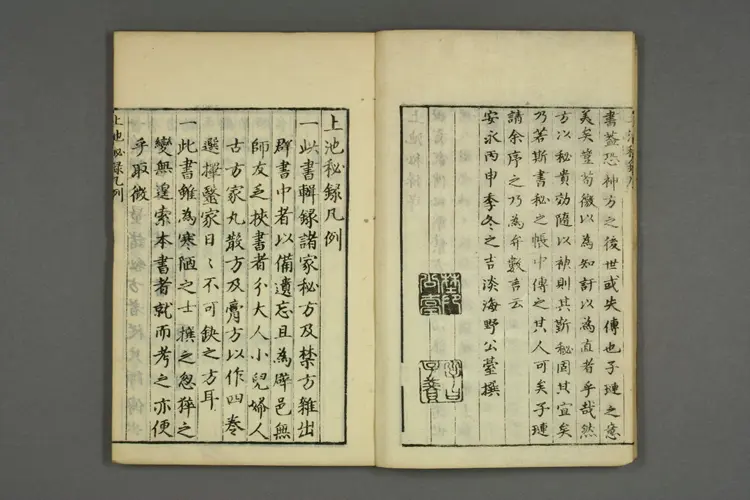 書蓋恐神方之後世或失傳也子璉之意
美矣豈苟徼以為知訐以為直者乎哉然
方以秘貴効隨以神則其斯秘固其宜矣
乃若斯書秘之帳中傳之其人可矣子璉
請余序之乃為弁數言云
安永丙申季冬之吉淡海野公臺撰
野印
公臺
子賤
上池秘録凡例
一此書輯録諸家秘方及禁方雜出
群書中者以備遺忘且為僻邑無
師友乏挾書者分大人小兒婦人
古方家丸散方及膏方以作四巻
選擇醫家日〻不可缺之方耳
一此書雖為寒陋之士撰之怱猝之
變無遑索本書者就而考之亦便
乎取徴
上池秘録凡例